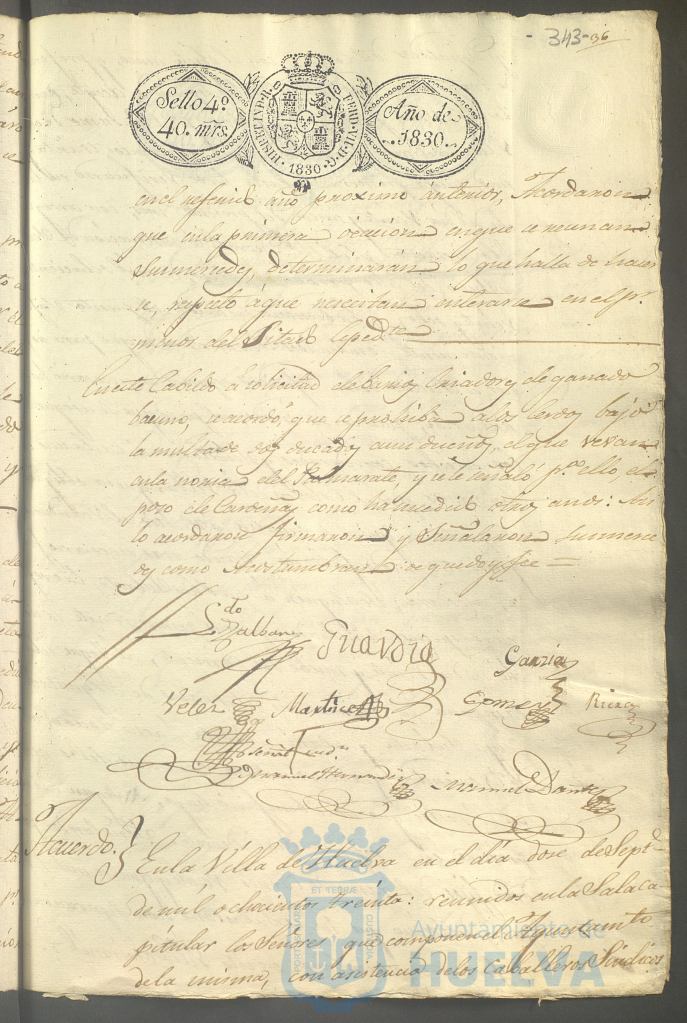 343-96
Sello 4º
40. mrs.
HISPET YND. R. FERD. VII. D. G.
1830
Año de
1830.
en el referido año proximo anterior, Acordaron
que en la primera ocacion en que se reunan
Sus mercedes, determinarán lo que halla de hacer
se, respecto á que necesitan enterarse en el por
menor del Citado Exped.te
En este Cabildo á solicitud de barios Criadores de ganado
bacuno, se acordó que se prohiba a los Cerdos bajo
la multa de dos ducados a sus dueños, el que vevan
en la noria del Salmarate, y se le señaló p.a ello, el
pozo de Cardeñas como ha sucedido otros anos: Asi
lo acordaron firmaron y Señalaron sus merce
des como acostumbran de que doy fee =
Guardia
Garzia
Velez
Martinez
Gomez
Manuel Hernandez
Manuel Dante
Acuerdo.} En la Villa de Huelva en el dia dose de Sept.e
de mil ochocientos treinta: reunidos en la Sala ca
pitular los Señores que componen el Ayuntam.to
de la misma, con asistencia de los Caballeros Sindicos
ET TERRAE
PORTUS MARIS
CUSTODIA
Ayuntamiento de
HUELVA